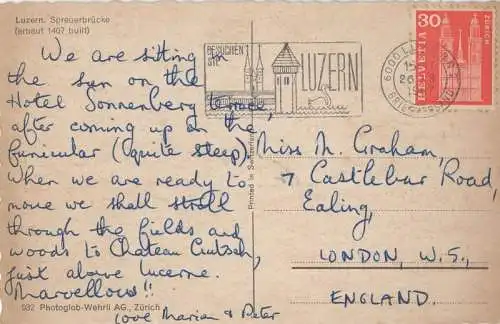 Luzern. Spreuerbrücke
(erbaut 1407 built)
We are sitting in
the sun on the
Hotel Sonnenberg terrace,
after coming up on the
funicular (quite steep)
When we are ready to
move we shall stroll
through the fields and
woods to Chateau Gutsch,
just above lucerne.
Marvellous!!
love Marian & Peter
932 Photoglob-Wehrli AG., Zürich
Printed in
BESUCHEN
SIE
LUZERN
6000 LUZERN
30
HELVETIA
ZÜRICH
Miss N. Graham,
7 Castlebar Road,
Ealing,
LONDON, W.5.,
ENGLAND.